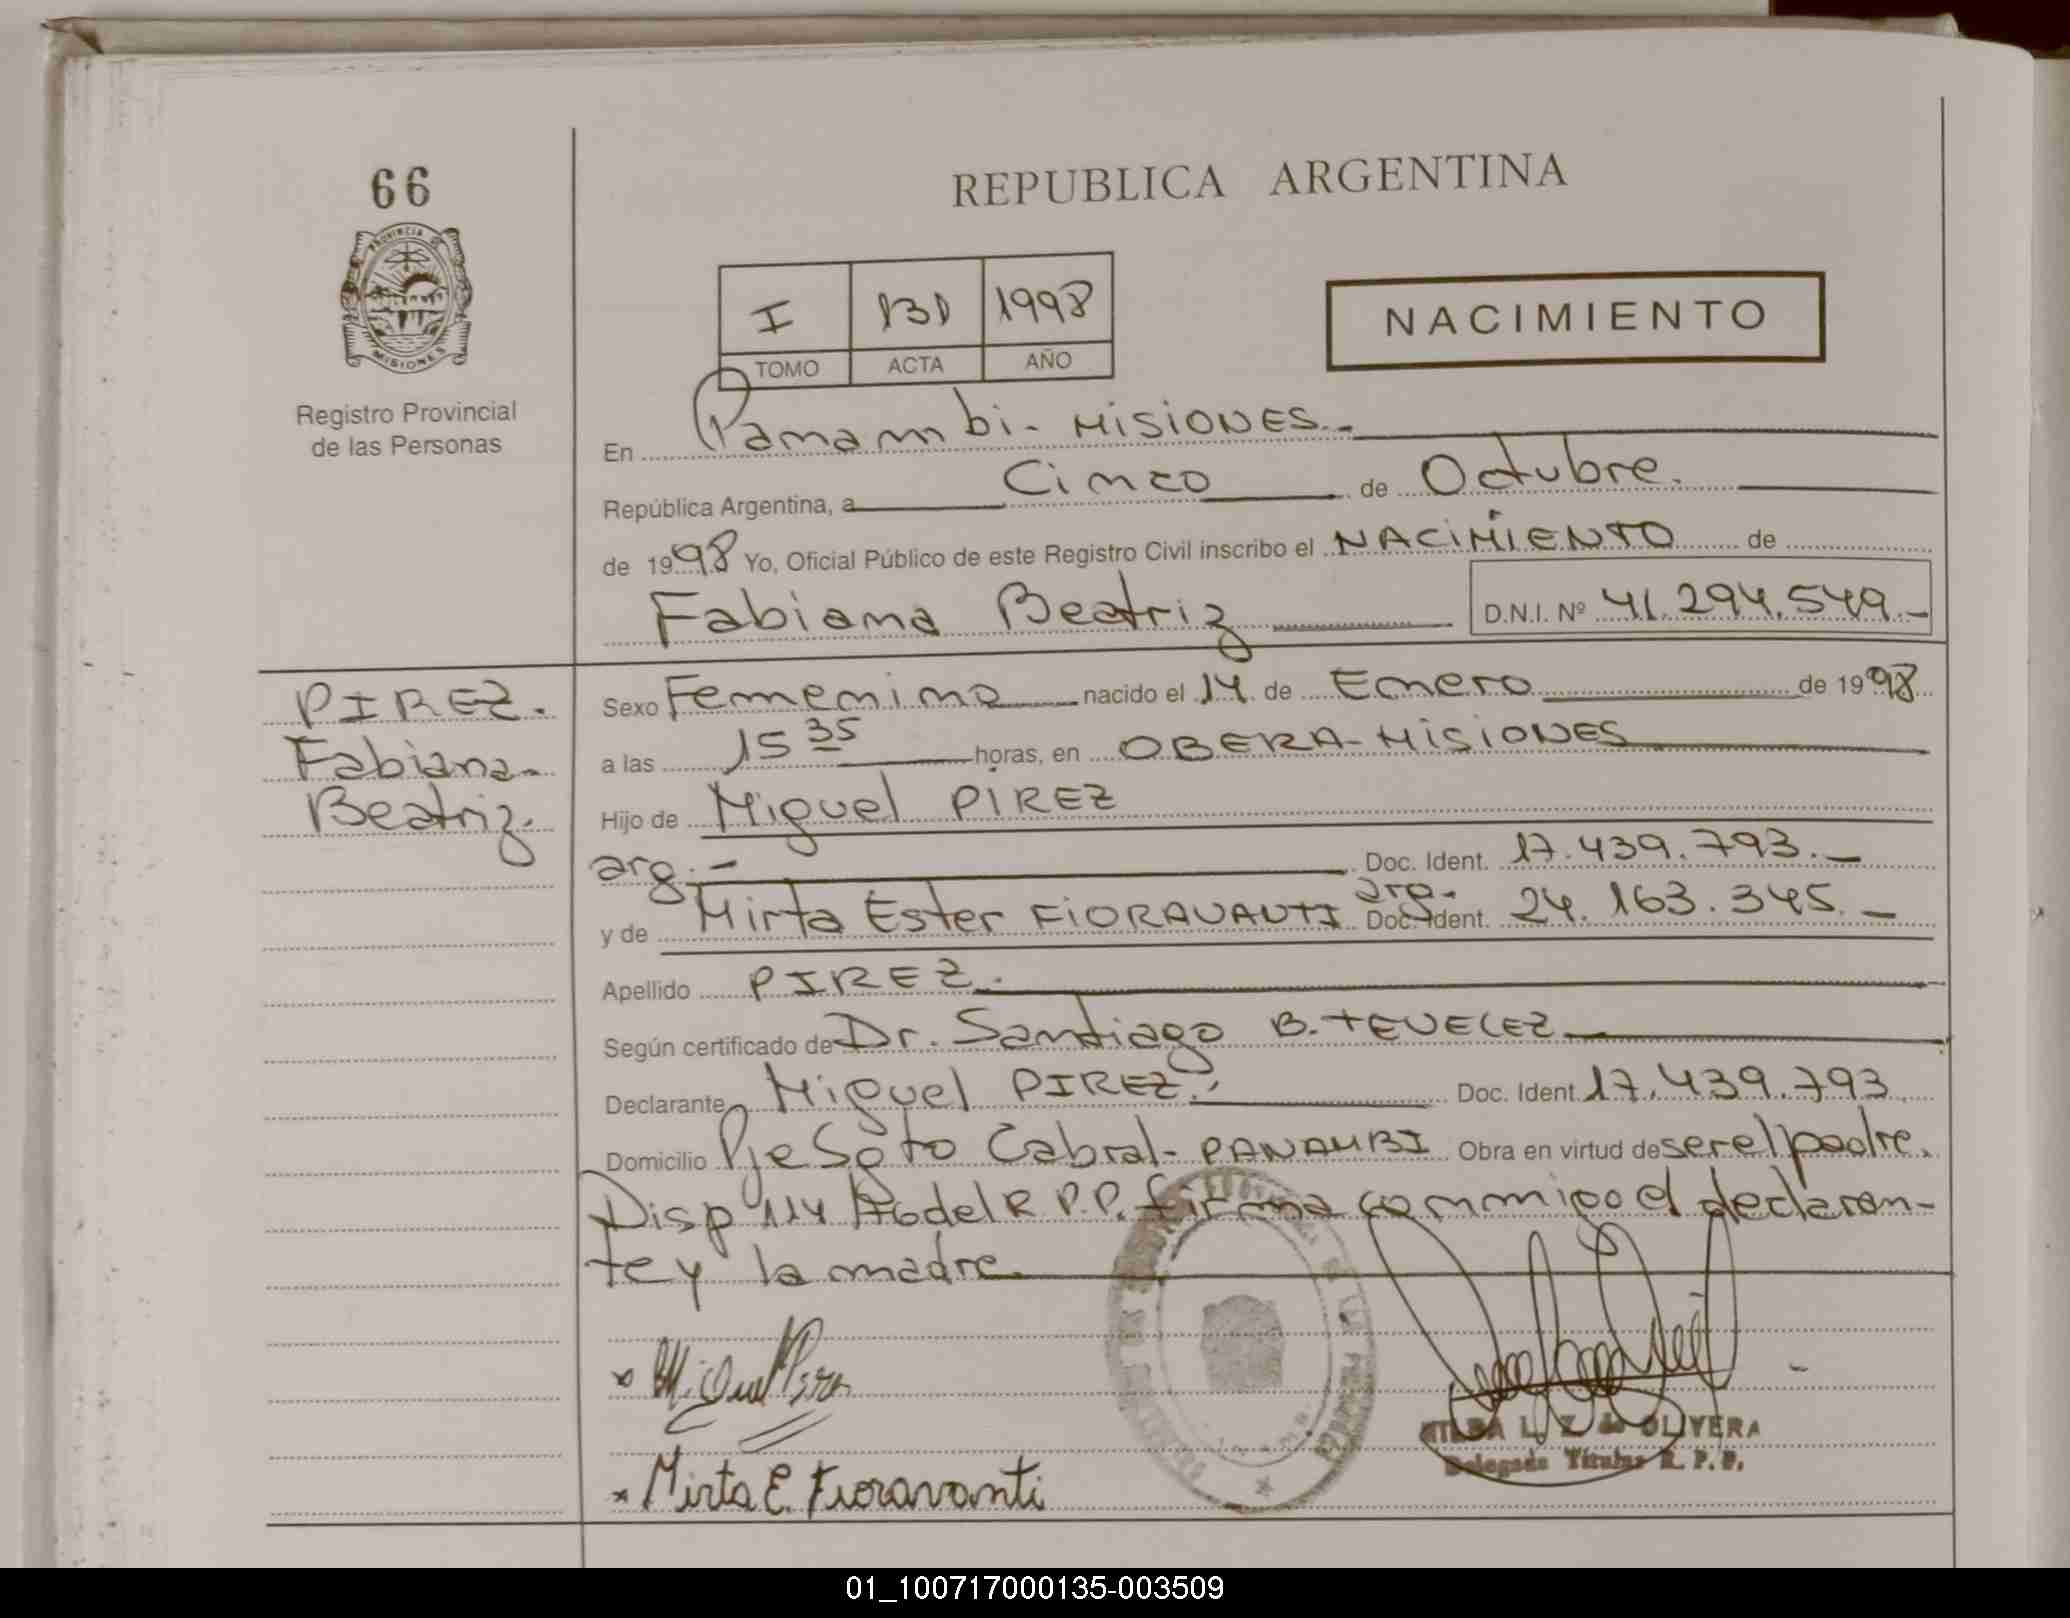 66
PROVINCIA DE
MISIONES
Registro Provincial
de las Personas
REPUBLICA ARGENTINA
I 131 1998
TOMO ACTA AÑO
NACIMIENTO
En Panambi - MISIONES.-
República Argentina, a Cinco de Octubre.
de 1998 Yo, Oficial Público de este Registro Civil inscribo el NACIMIENTO de
Fabiana Beatriz D.N.I. Nº 41.294.549.-
PIREZ.
Fabiana-
Beatriz.
Sexo Femenino nacido el 14 de Enero de 1998
a las 15 35 horas, en OBERA-MISIONES
Hijo de Miguel PIREZ
arg.- Doc. Ident. 17.439.793.-
y de Mirta Ester FIORAVANTI arg. Doc. Ident. 24.163.345.-
Apellido PIREZ.
Según certificado de Dr. Santiago B. TEVELEZ
Declarante Miguel PIREZ.- Doc. Ident. 17.439.793
Domicilio Pje Sgto Cabral- PANAMBI Obra en virtud de ser el padre.
Disp 114 del R.P.P. firma conmigo el declaran-
te y la madre.
x Miguel
x Mirta E. Fioravanti
L. Z. de OLIVERA
Delegada Titular R. P. P.
01_100717000135-003509